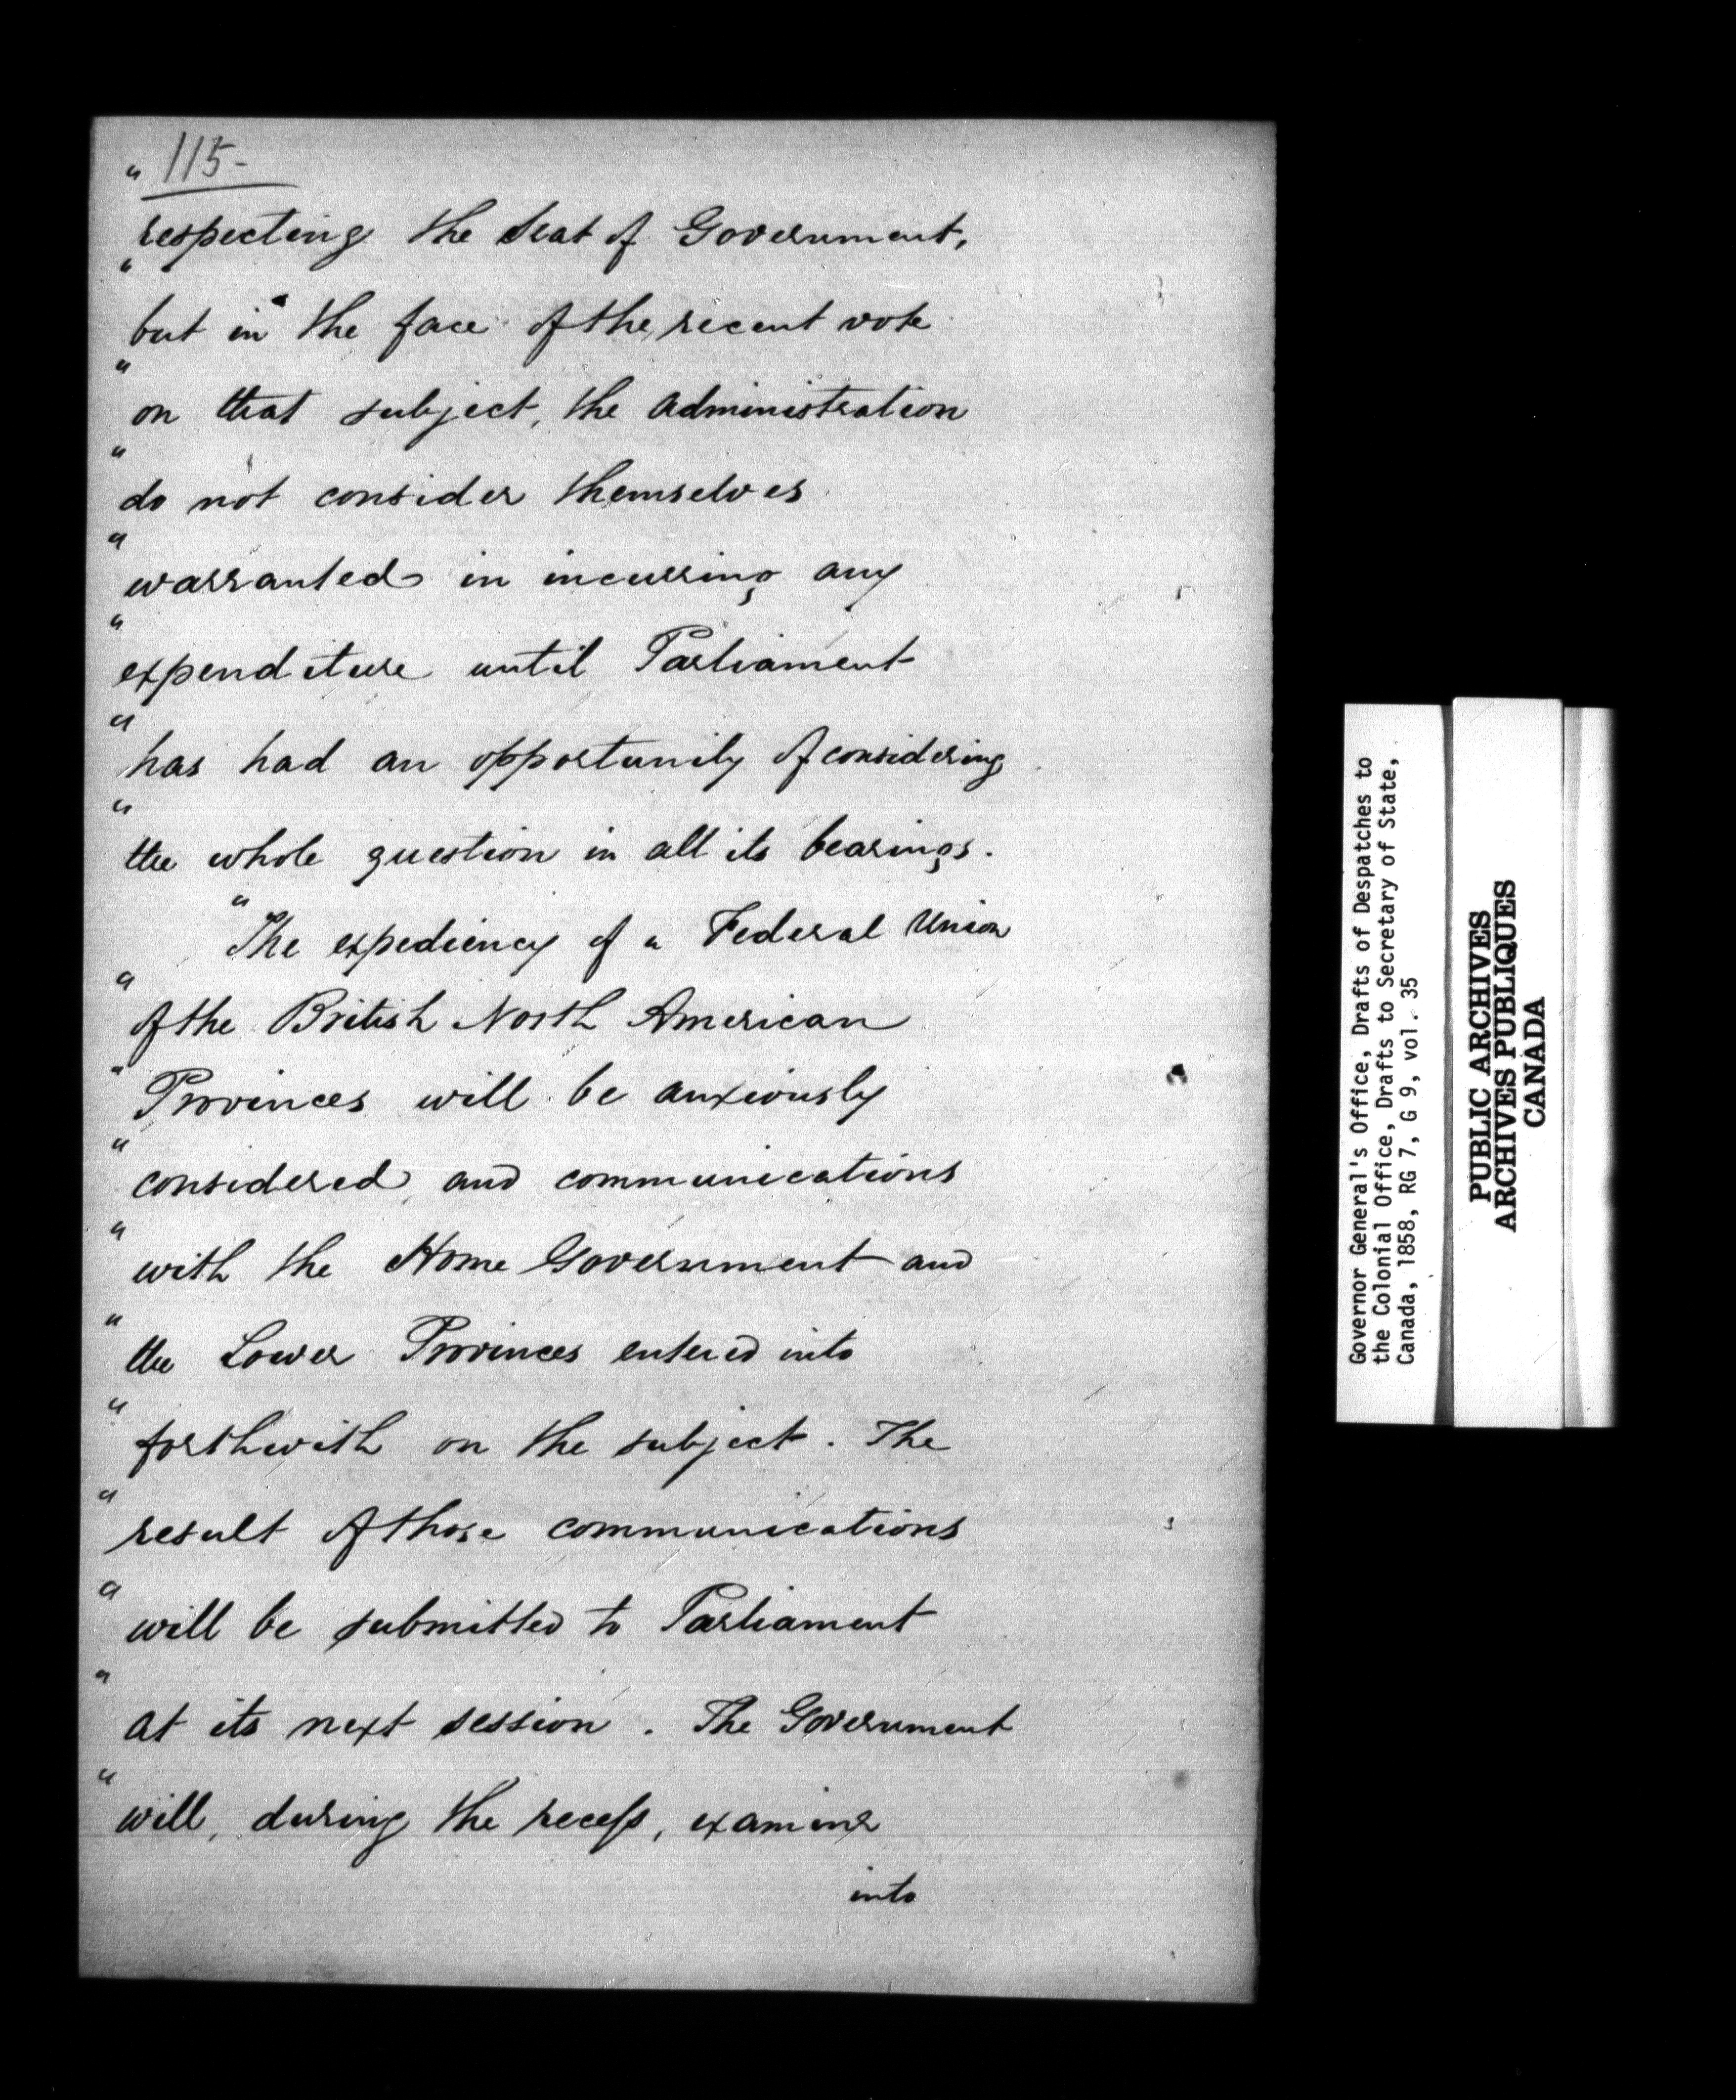 " 115-
respecting the Seat of Government,
" but in the face of the recent vote
" on that subject, the administration
" do not consider themselves
" warranted in incurring any
" expenditure until Parliament
" has had an opportunity of considering
" the whole question in all its bearings.
" The expediency of a Federal Union
" of the British North American
" Provinces will be anxiously
" considered, and communications
" with the Home Government and
" the Lower Provinces entered into
" forthwith on the subject. The
" result of those communications
" will be submitted to Parliament
" at its next session. The Government
" will, during the recess, examine
into
Governor General's Office, Drafts of Despatches to
the Colonial Office, Drafts to Secretary of State,
Canada, 1858, RG 7, G 9, vol. 35
PUBLIC ARCHIVES
ARCHIVES PUBLIQUES
CANADA